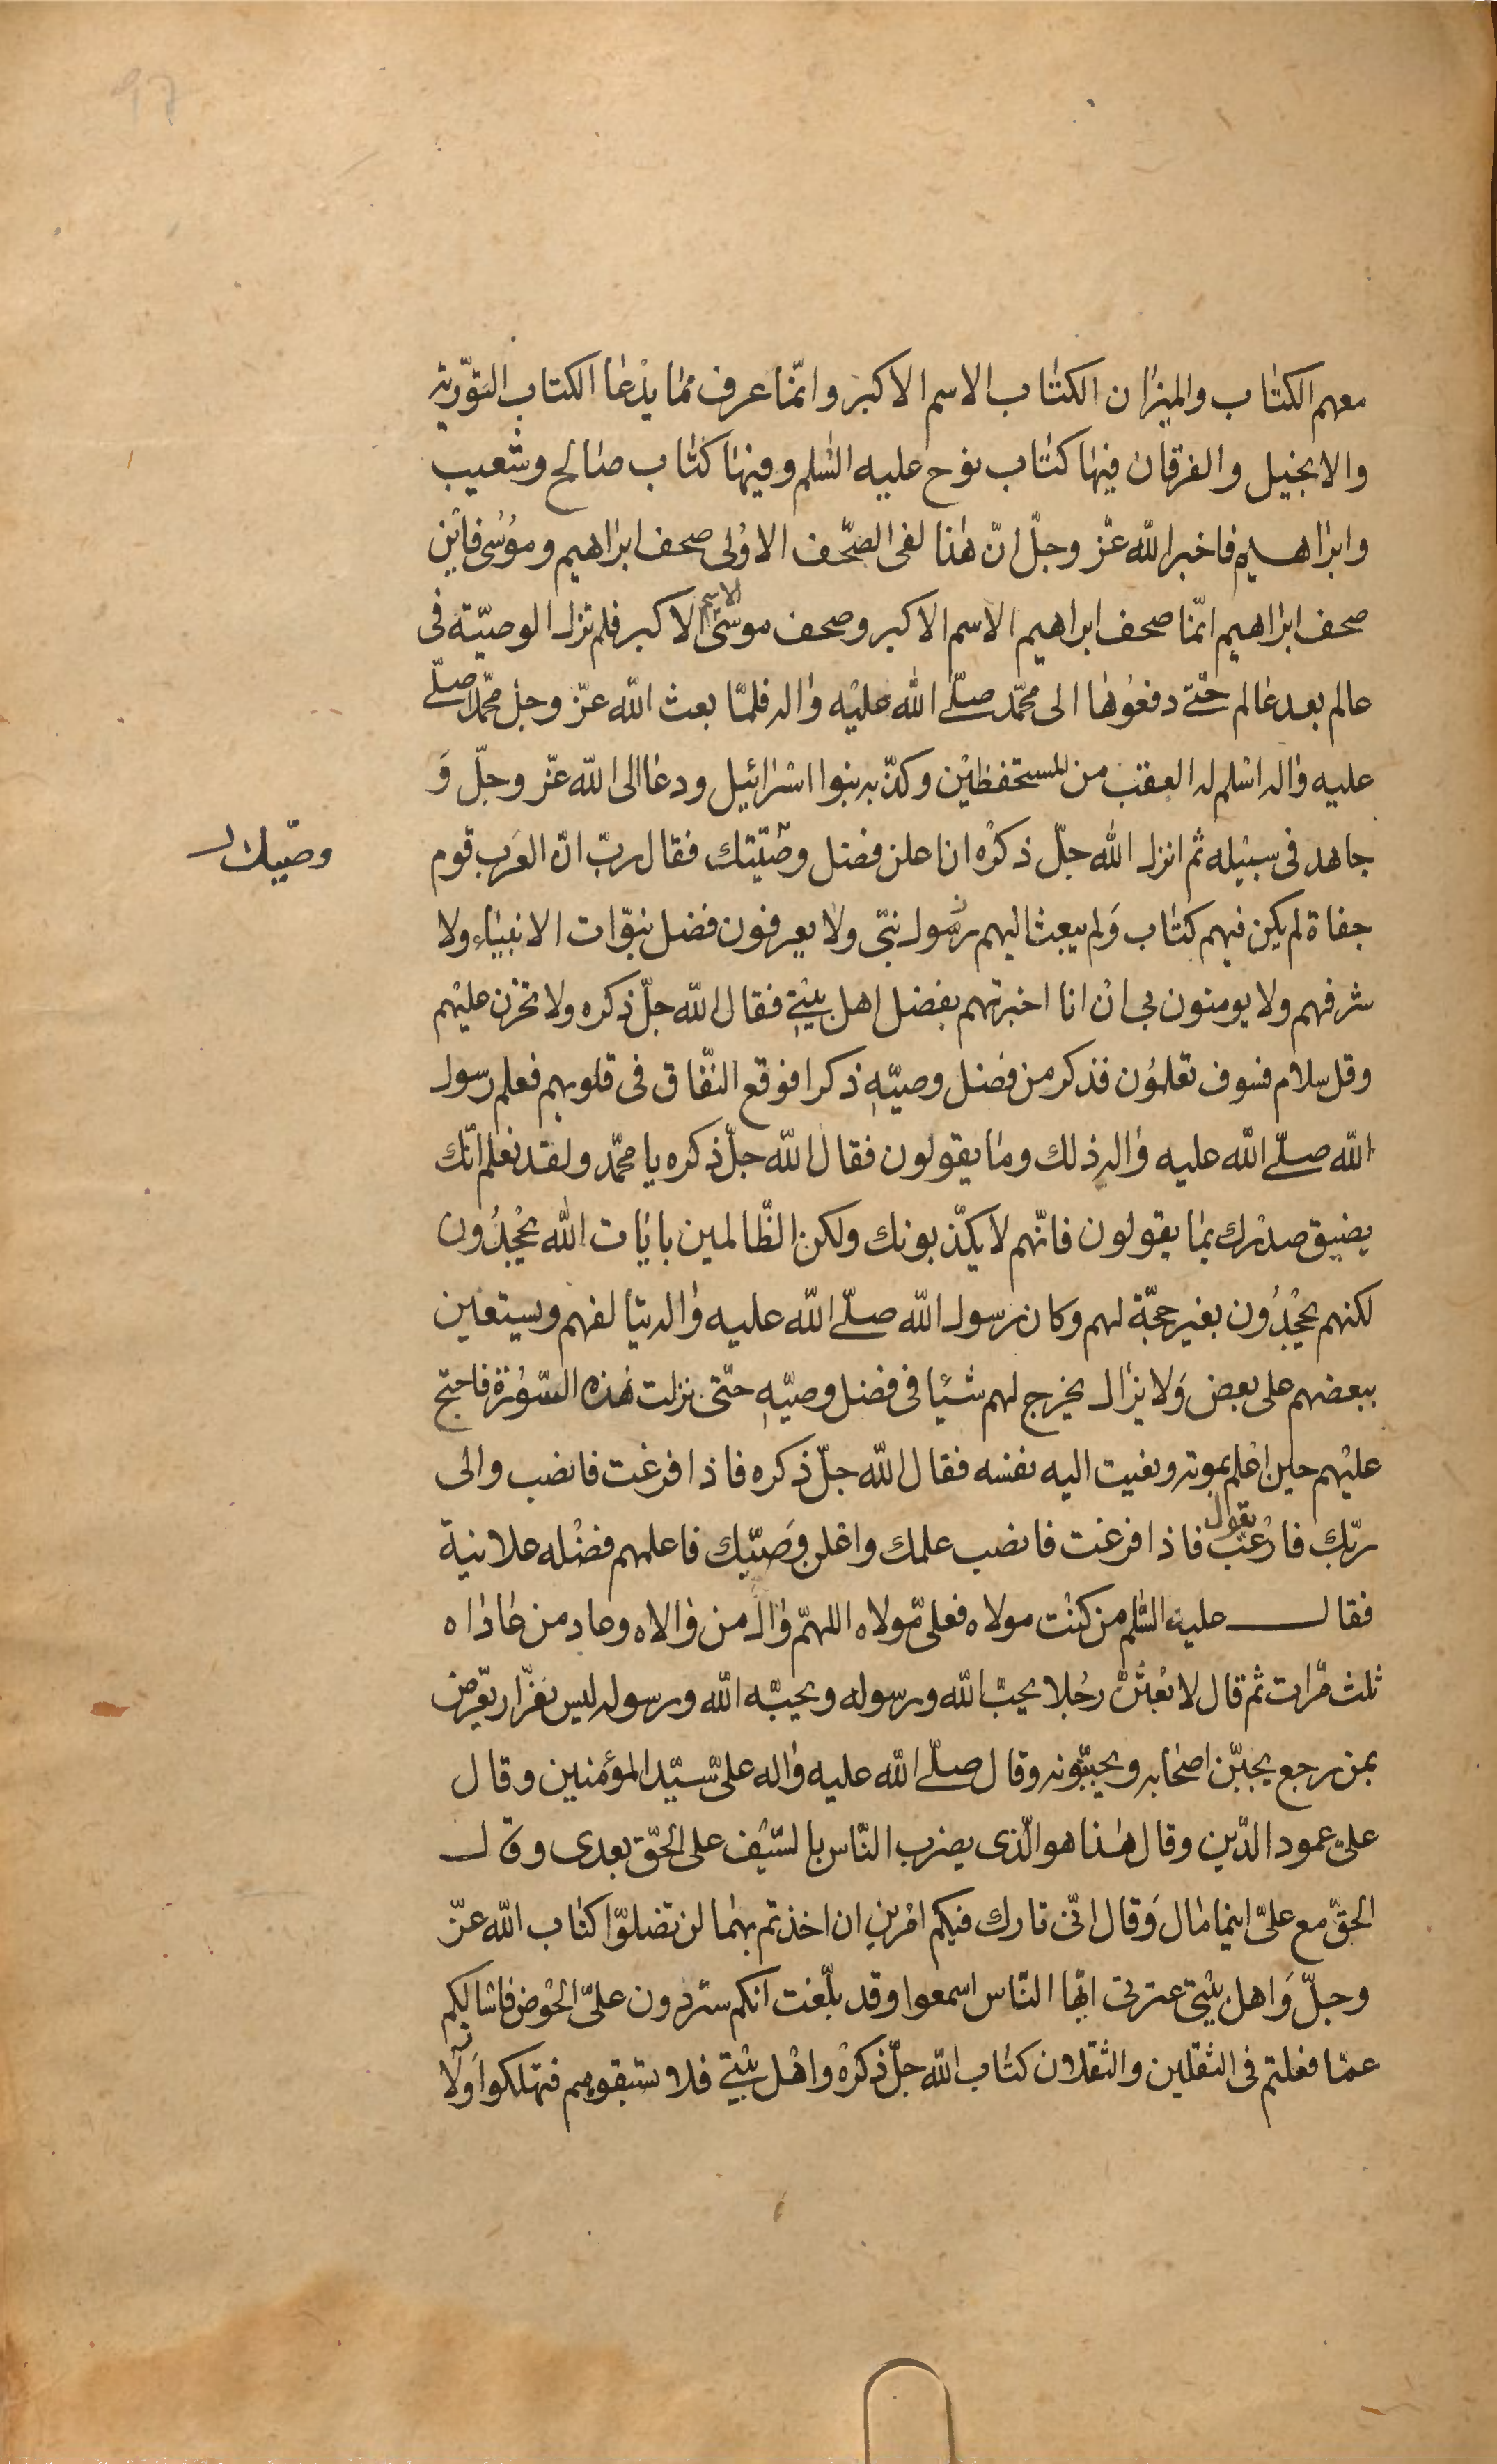 معهم الكتاب والميزان الكتاب الاسم الاكبر وانّما عرف ممّا يدعا الكتاب التوّرية
والانجيل والفرقان فيها كتاب نوح عليه السّلم وفيها كتاب صالح وشعيب
وابراهيم فاخبر الله عزّ وجلّ انّ هذا لفى الصّحف الاوُلى صحف ابراهيم وموُسى فاين
صحف ابراهيم انّما صحف ابراهيم الاسم الاكبر وصحف موسى الاسم الاكبر فلم تزل الوصيّة فى
عالم بعد عالم حتّى دفعُوها الى محمّد صلّى الله عليه واله فلمّا بعث الله عزّ وجلّ محمّدا صلّى
عليه واله اسلم له العقب من المستحفظين وكذّبه بنوا اسرائيل ودعا الى الله عزّ وجلّ وَ
جاهد فى سبيله ثم انزل الله جلّ ذكره ان اعلن فضل وصّيتك فقال ربّ انّ العَرب قوم
وصّيك
جفاة لم يكن فيهم كتاب وَلم يبعث اليهم رسُول نبّى ولا يعرفون فضل نبوّات الانبياء ولا
شرفهم ولا يومنون بى ان انا اخبرتهم بفضل اهل بيتى فقال الله جلّ ذكره ولا تحزن عليهم
وقل سلام فسوف تعلمُون فذكر من فضل وصيّه ذكرا فوقع النّفاق فى قلوبهم فعلم رسول
الله صلّى الله عليه واله ذلك وما يقولون فقال الله جلّ ذكره يا محمّد ولقد نعلم انّك
يضيق صدرك بما يقولون فانّهم لا يكذّبونك ولكن الظّالمين بايات الله يجحدُون
لكنهم يجحدُون بغير حجّة لهم وكان رسول الله صلّى الله عليه واله يتألفهم ويستعين
ببعضهم على بعض وَلا يزال يخرج لهم شيئا فى فضل وصيّه حتّى نزلت هذه السّوُرة فاحتج
عليهم حين اعلم بموته ونعيت اليه نفسه فقال الله جلّ ذكره فاذا فرغت فانصب والى
ربّك فارغب يقول فاذا فرغت فانصب علمك واعلن وَصيّك فاعلمهم فضله علانية
فقال عليه السّلم من كنت مولاه فعلىّ مولاه اللهمّ وال من والاه وعاد من عاداه
ثلث مرّات ثم قال لابعثنّ رجُلا يحبّ الله ورسوله ويحبّه الله ورسوله ليس بفرّار يعّرض
بمن رجع يجبّن اصحابه ويجبّنونه وقال صلّى الله عليه واله علىّ سيّد المؤمنين وقال
علىّ عمود الدّين وقال هذا هو الّذى يضرب النّاس بالسّيف على الحّق بعدى وقال
الحقّ مع علىّ اينما مال وَقال انّى تارك فيكم امْرين ان اخذتم بهما لن تضلوّا كتاب الله عزّ
وجلّ وَاهل بيتى عترتى ايّها النّاس اسمعوا وقد بلّغت انكم ستردون علىّ الحوْض فاسالكم
عمّا فعلتم فى الثقلين والثقلان كتاب الله جلّ ذكره واهل بيتى فلا تسبقوهم فتهلكوا وَلا